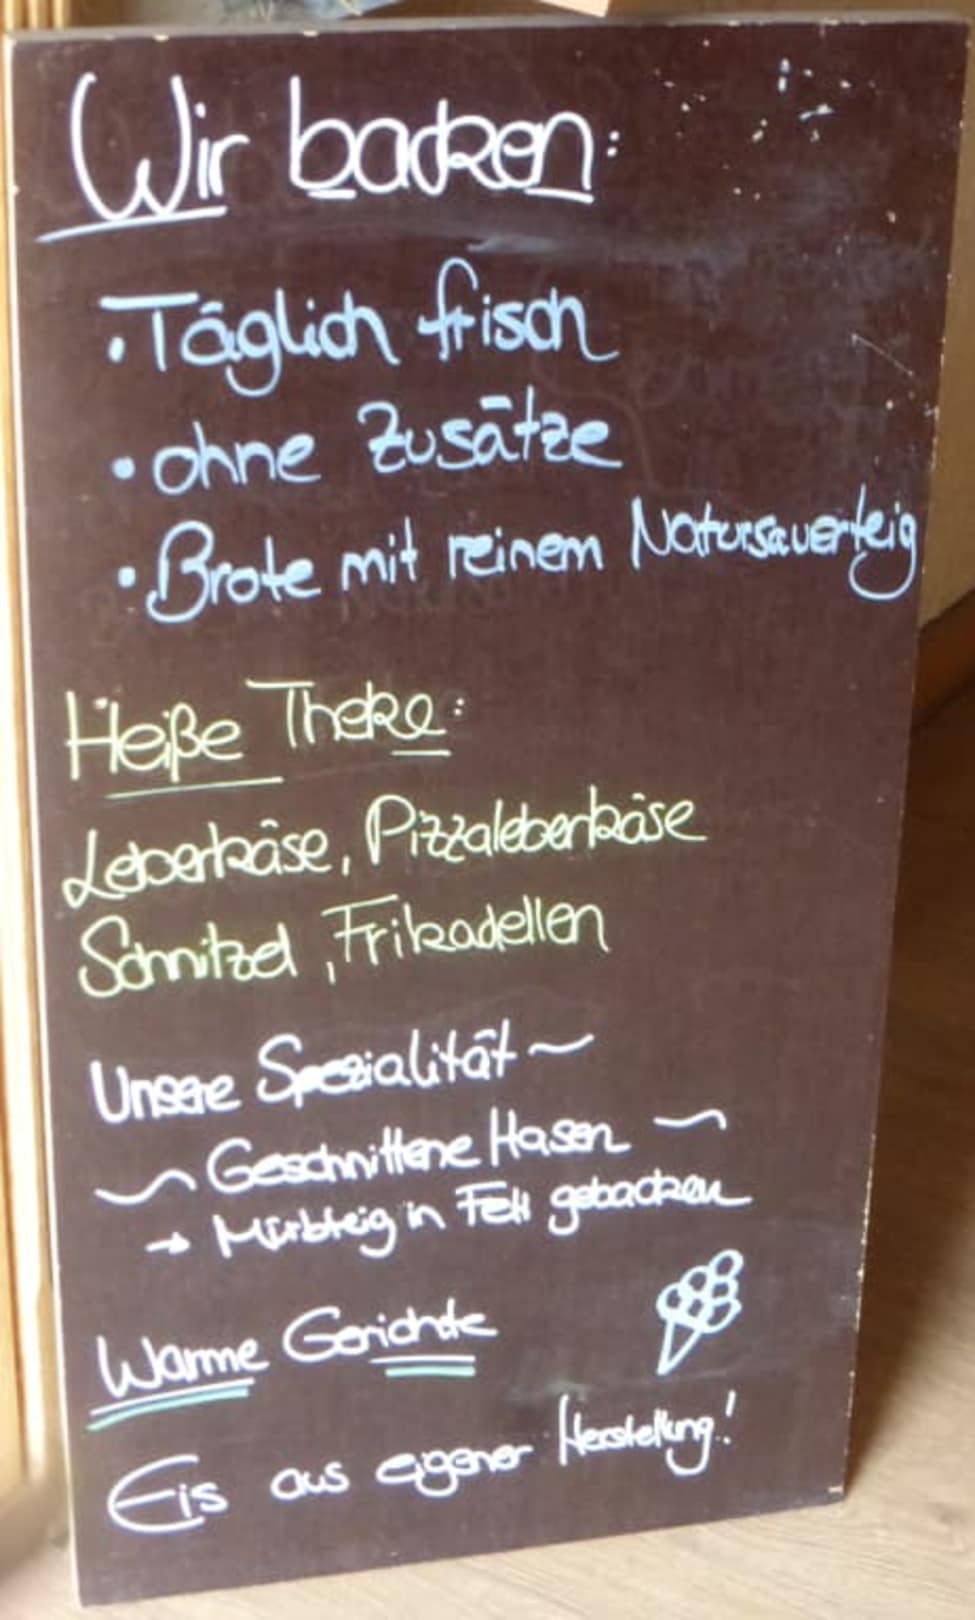 Wir backen:
· Täglich frisch
· ohne Zusätze
· Brote mit reinem Natursauerteig
Heiße Theke:
Leberkäse, Pizzaleberkäse
Schnitzel, Frikadellen
Unsere Spezialität ~
~ Geschnittene Hasen ~
→ Mürbteig in Fett gebacken
Warme Gerichte
Eis aus eigener Herstellung!